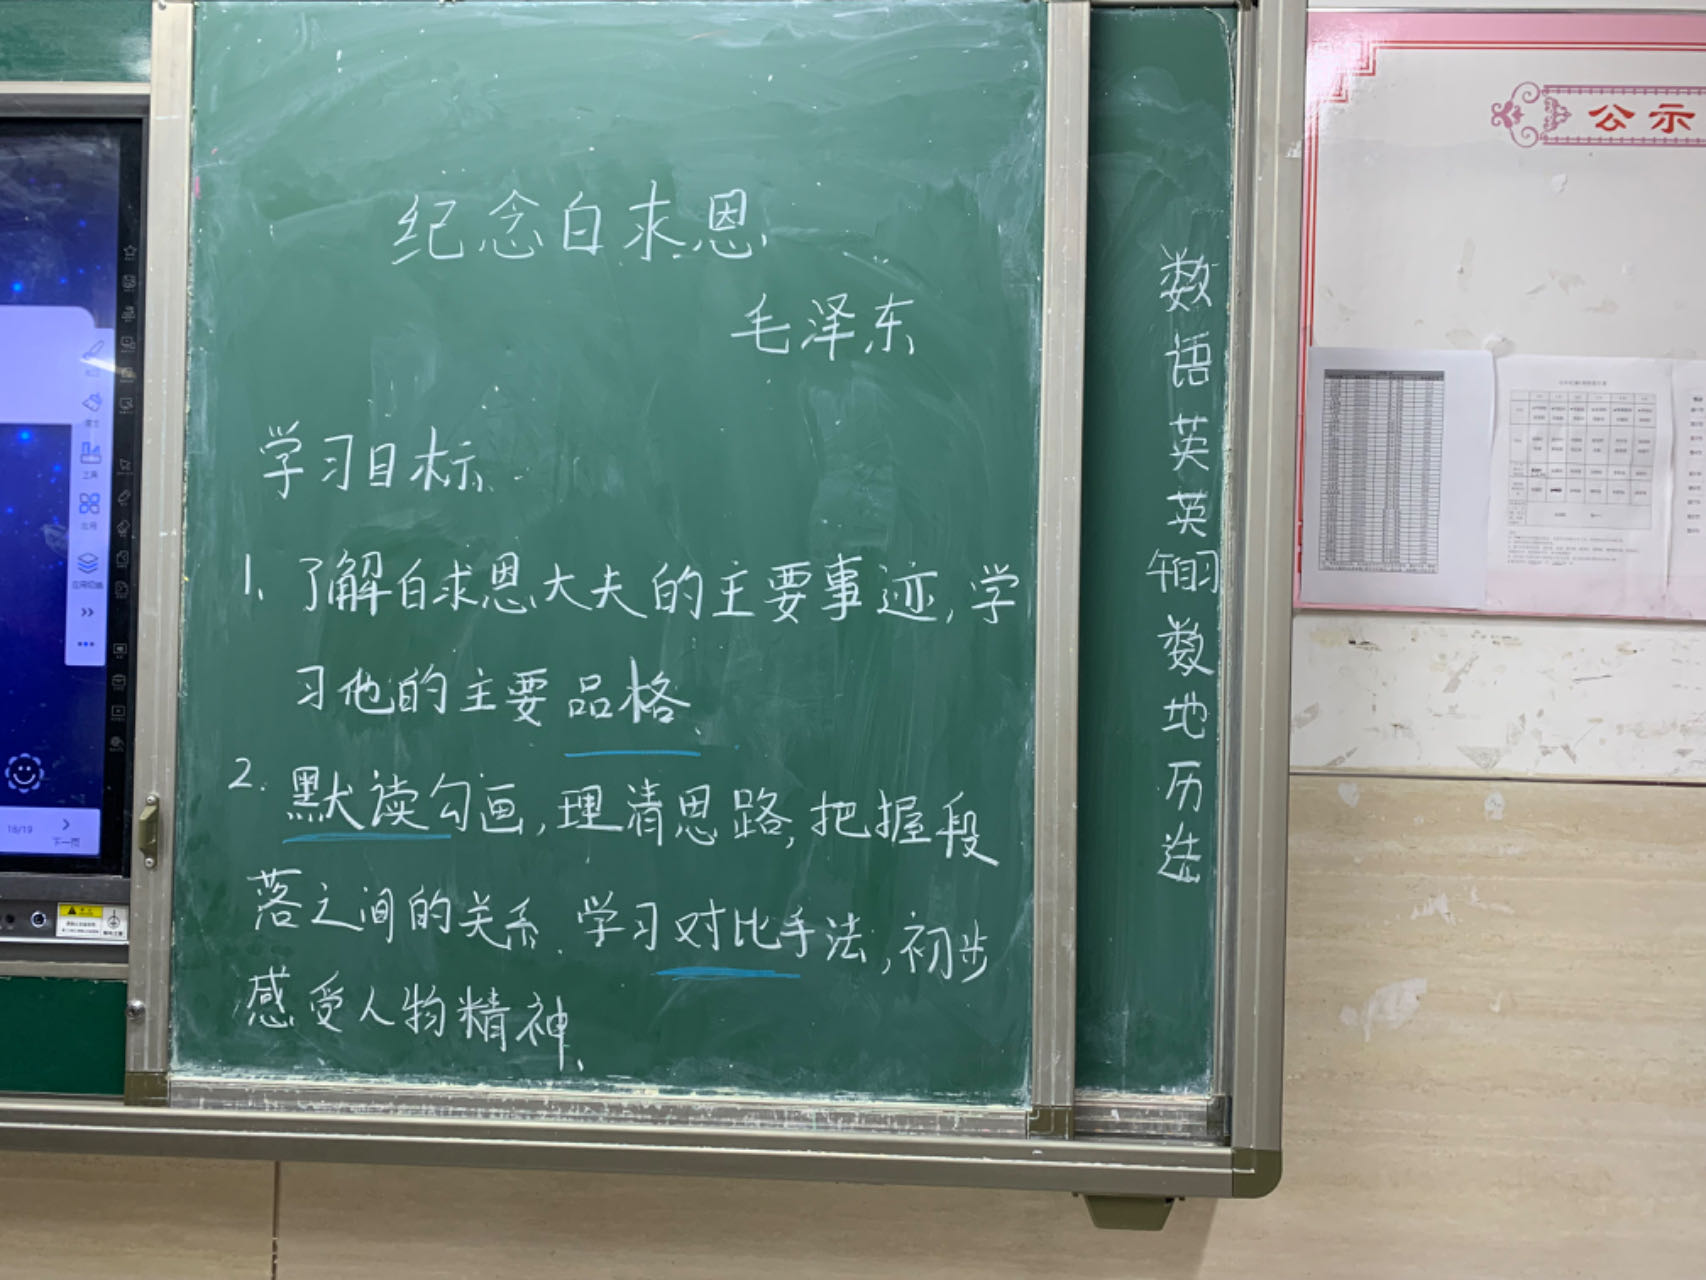 纪念白求恩
毛泽东
学习目标
1、了解白求恩大夫的主要事迹,学
习他的主要品格、
2. 默读勾画,理清思路,把握段
落之间的关系、学习对比手法,初步
感受人物精神、
数
语
英
英
午自习
数
地
历
公示
工具
应用
18/19
下一页